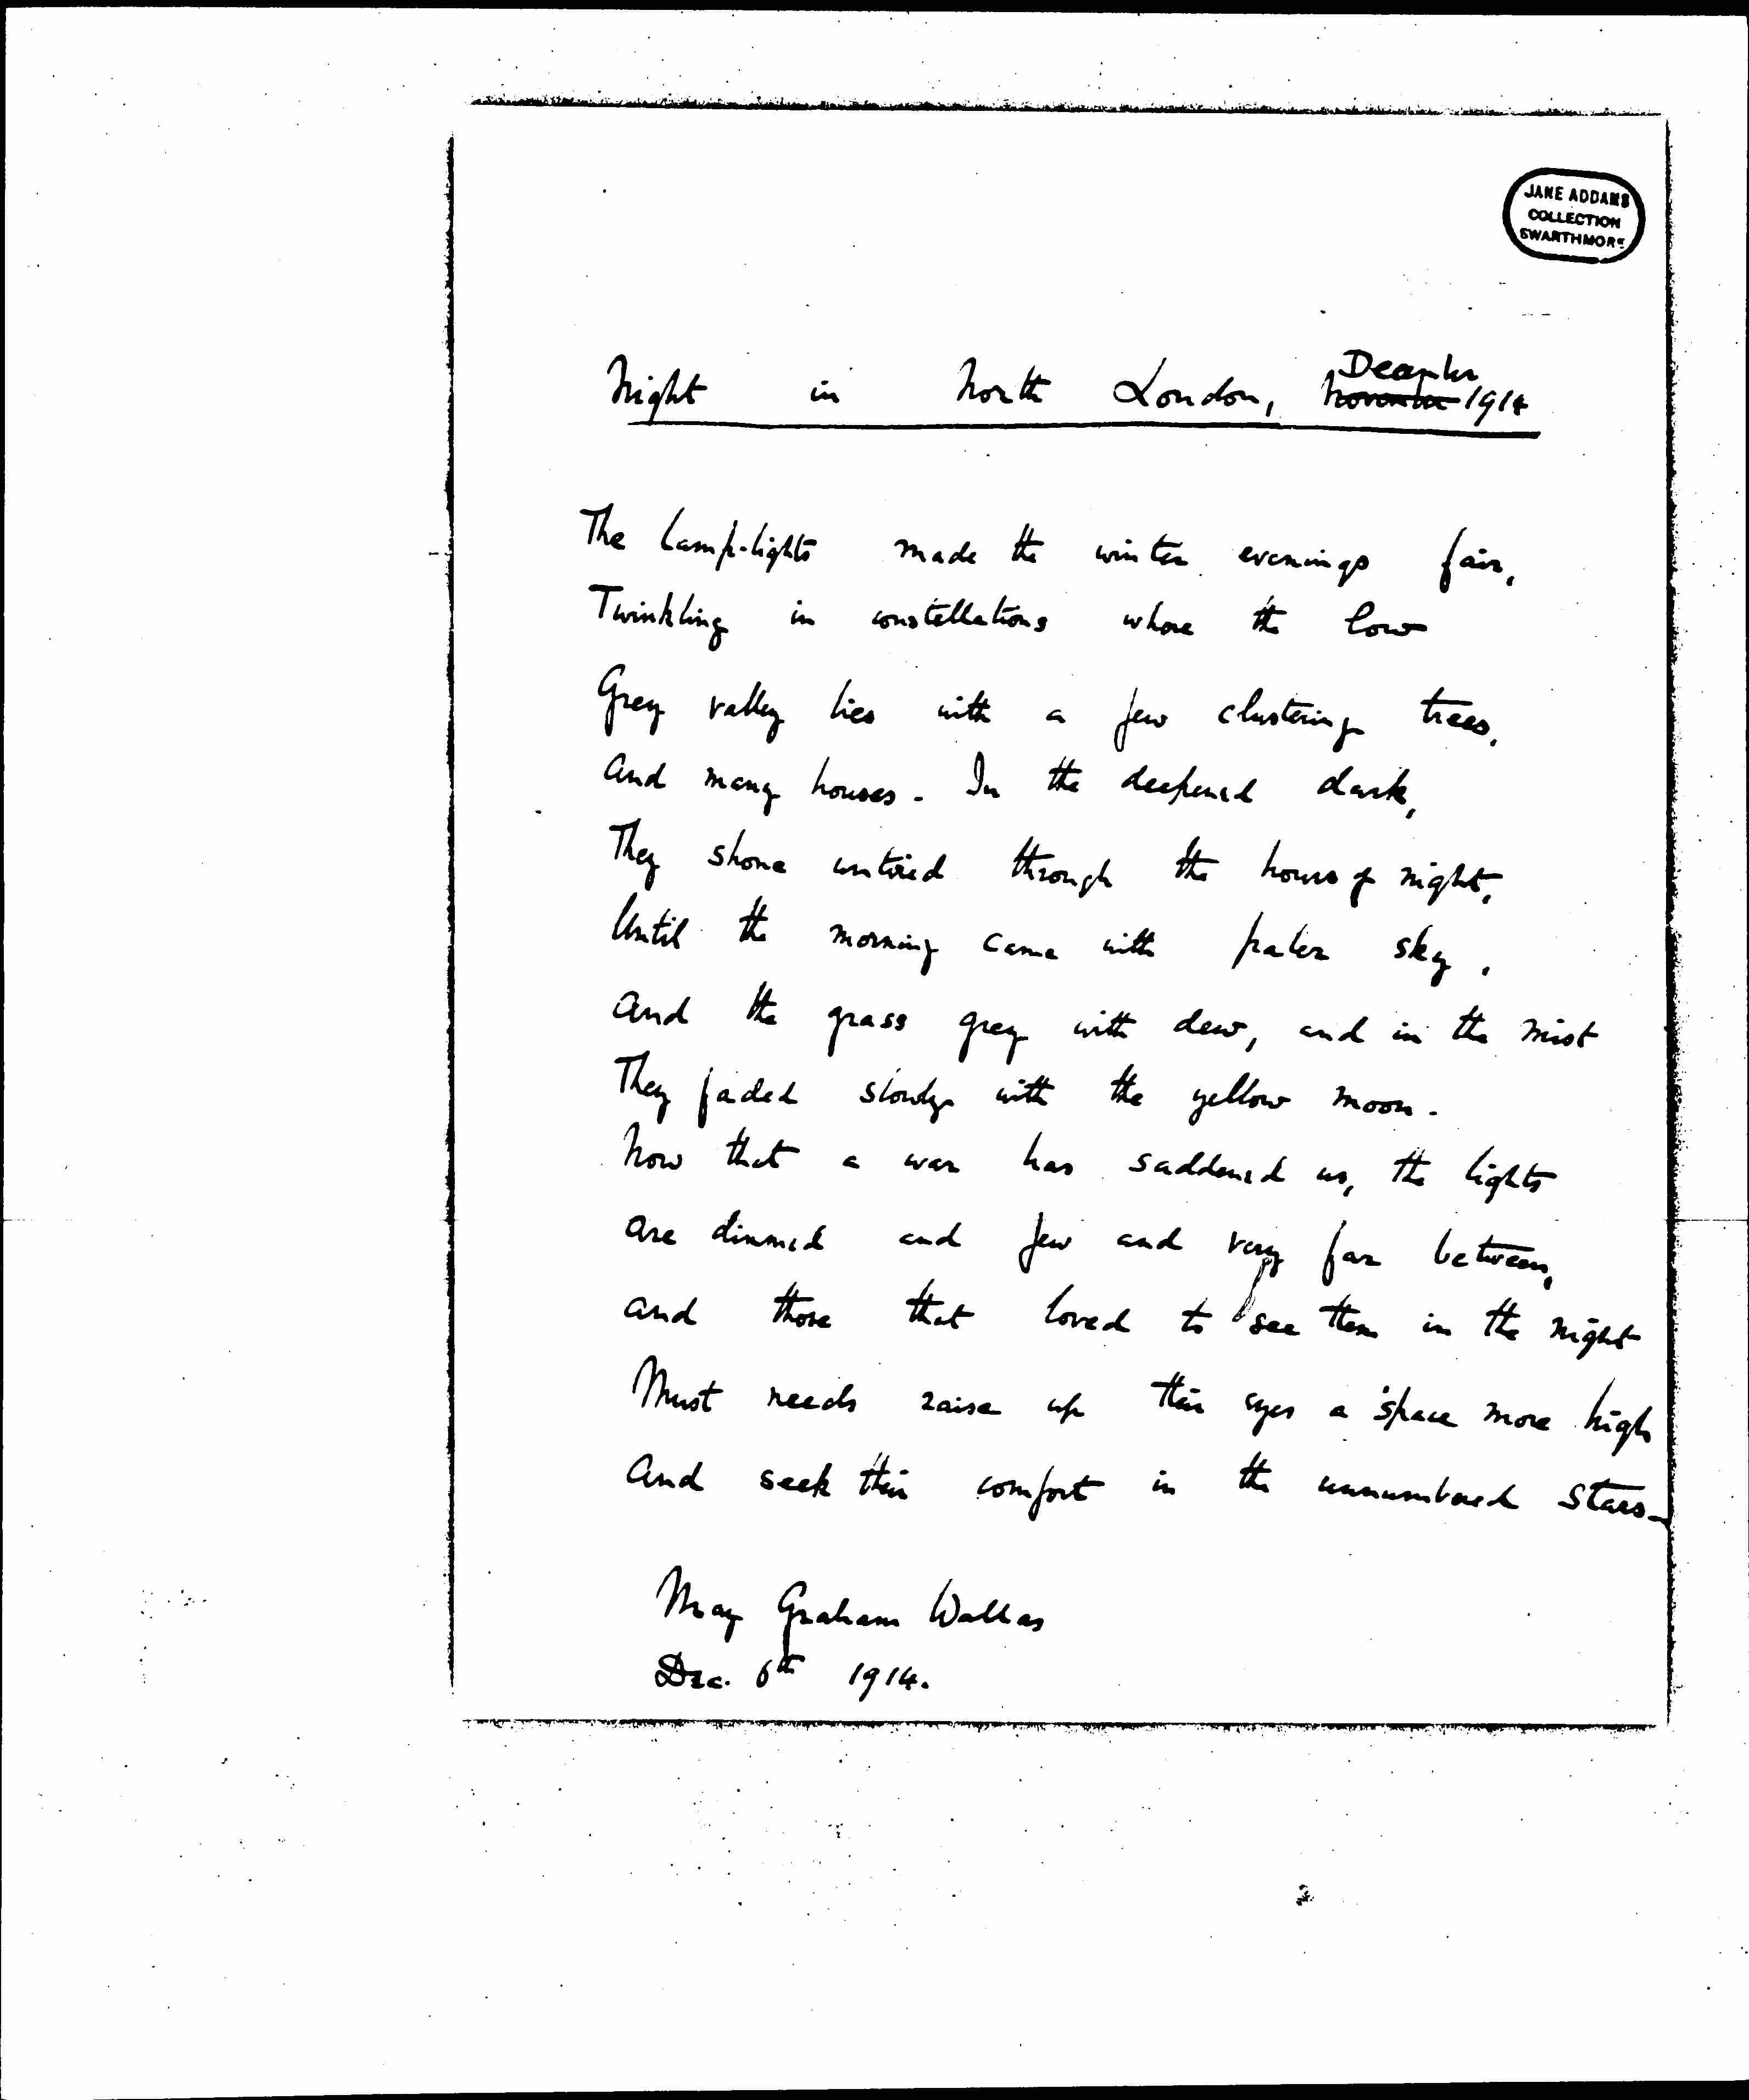 JANE ADDAMS
COLLECTION
SWARTHMORE
December
Night in North London, November 1914
The lamp-lights made the winter evenings fair,
Twinkling in constellations where the low
Grey valley lies with a few clustering trees,
And many houses. In the deepened dark,
They shone untired through the hours of night,
Until the morning came with paler sky,
And the grass grey with dew, and in the mist
They faded slowly with the yellow moon.
Now that a war has saddened us, the lights
Are dimmed and few and very far between,
And those that loved to see them in the night
Must needs raise up their eyes a space more high
And seek their comfort in the unnumbered stars.
May Graham Wallas
Dec. 6th 1914.